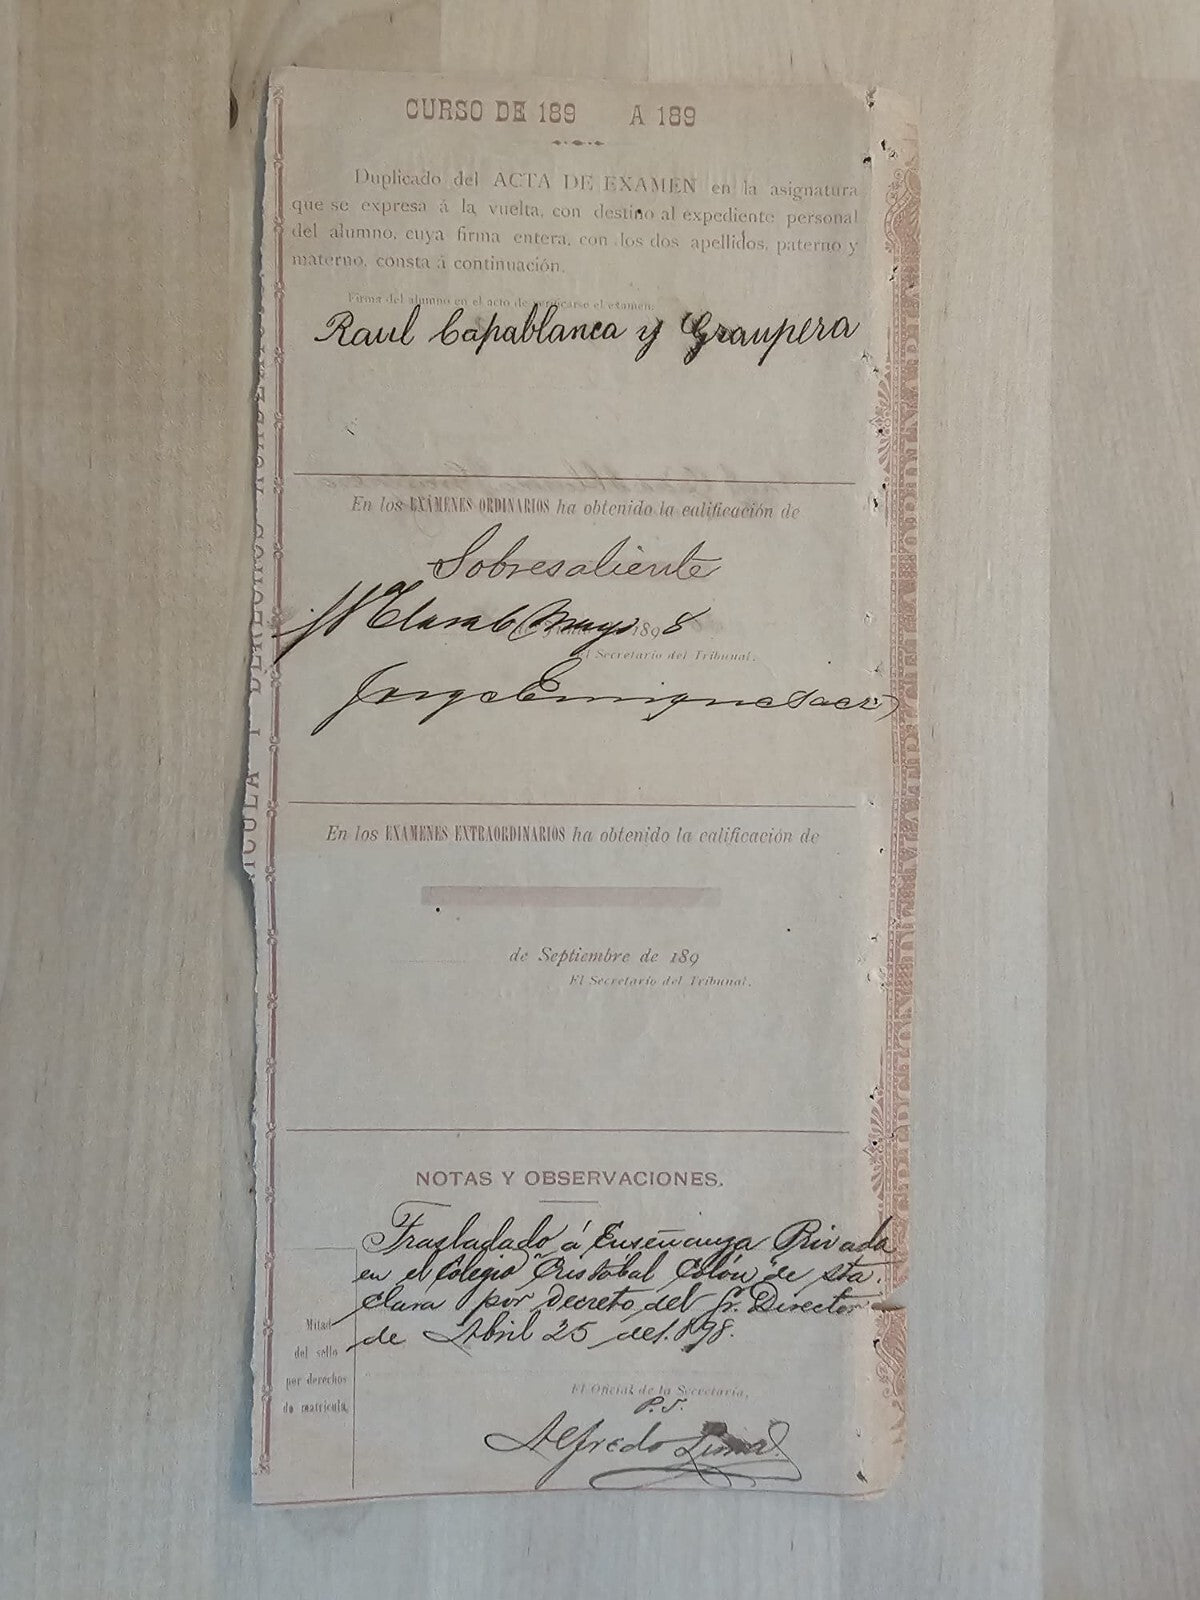 CURSO DE 189 A 189
Duplicado del ACTA DE EXAMEN en la asignatura
que se expresa á la vuelta, con destino al expediente personal
del alumno, cuya firma entera, con los dos apellidos, paterno y
materno, consta á continuación.
Firma del alumno en el acto de verificarse el examen.
Raul Capablanca y Graupera
En los EXÁMENES ORDINARIOS ha obtenido la calificación de
Sobresaliente
Clara 6 Mayo 1898
El Secretario del Tribunal.
Jorge Enrique
En los EXÁMENES EXTRAORDINARIOS ha obtenido la calificación de
de Septiembre de 189
El Secretario del Tribunal.
NOTAS Y OBSERVACIONES.
Trasladado á Enseñanza Privada
en el Colegio "Cristóbal Colón" de Sta.
Clara por decreto del Sr. Director
de Abril 25 de 1.898.
Mitad
del sello
por derechos
de matrícula.
El Oficial de la Secretaría,
P.S.
Alfredo Lima